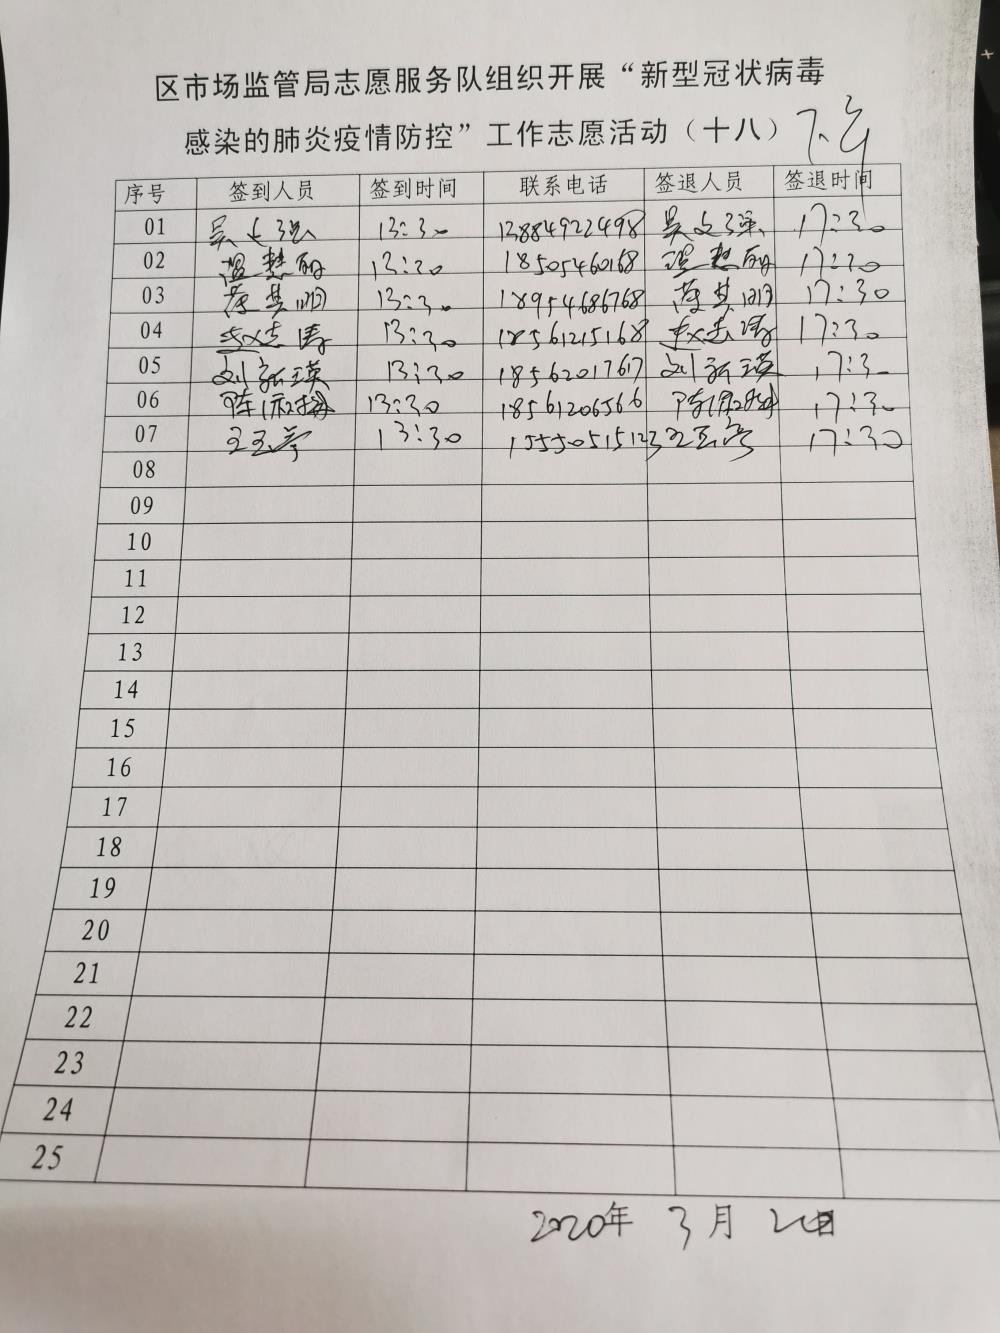 区市场监管局志愿服务队组织开展“新型冠状病毒
感染的肺炎疫情防控”工作志愿活动（十八）下午
序号 签到人员 签到时间 联系电话 签退人员 签退时间
01 吴文强 13:30 13884922498 吴文强 17:30
02 温慧丽 13:30 18505460168 温慧丽 17:30
03 13:30 18954686768 17:30
04 赵志涛 13:30 18561215168 赵志涛 17:30
05 刘新瑛 13:30 18562017617 刘新瑛 17:30
06 13:30 18561206566 17:30
07 13:30 15550515123 17:30
08
09
10
11
12
13
14
15
16
17
18
19
20
21
22
23
24
25
2020年 3月 日